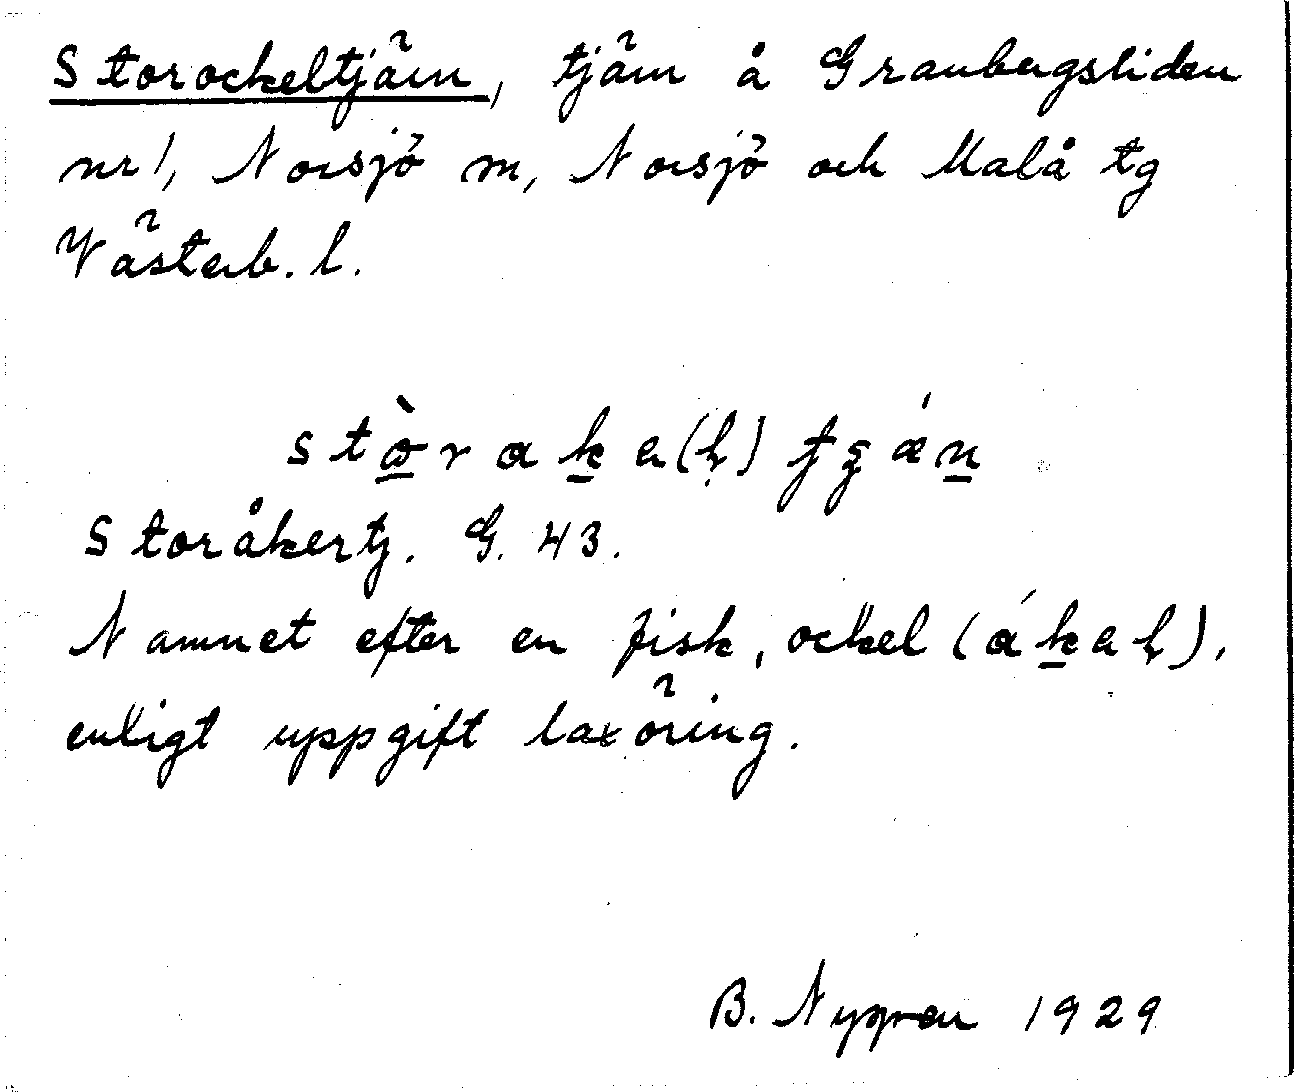 Storockeltjärn, tjärn å Granbergsliden
nr 1, Norsjö sn, Norsjö och Malå tg
Västerb. l.
Storåkertj. G. 43.
Namnet efter en fisk, ockel
enligt uppgift laxöring.
B. Nygren 1929